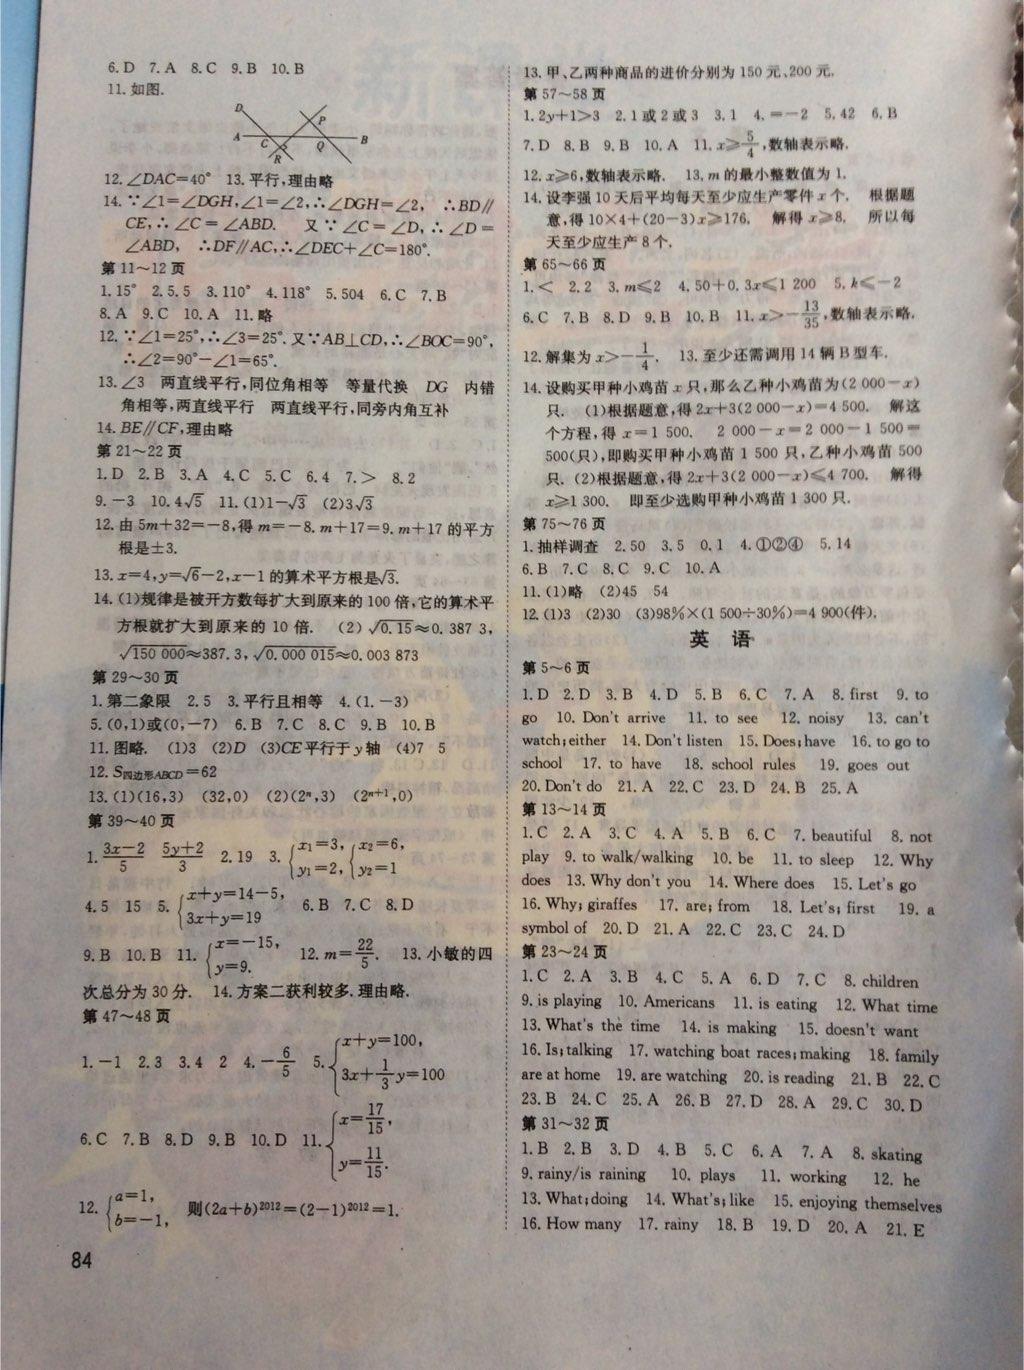 6.D 7.A 8.C 9.B 10.B
11.如图.
D P A C Q B R
12.∠DAC=40° 13.平行,理由略
14.∵∠1=∠DGH,∠1=∠2,∴∠DGH=∠2, ∴BD∥
CE,∴∠C=∠ABD. 又∵∠C=∠D,∴∠D=
∠ABD, ∴DF∥AC,∴∠DEC+∠C=180°.
第11~12页
1.15° 2.5.5 3.110° 4.118° 5.504 6.C 7.B
8.A 9.C 10.A 11.略
12.∵∠1=25°,∴∠3=25°.又∵AB⊥CD,∴∠BOC=90°,
∴∠2=90°-∠1=65°.
13.∠3 两直线平行,同位角相等 等量代换 DG 内错
角相等,两直线平行 两直线平行,同旁内角互补
14.BE∥CF,理由略
第21~22页
1.D 2.B 3.A 4.C 5.C 6.4 7.> 8.2
9.-3 10.4√5 11.(1)1-√3 (2)3√3
12.由5m+32=-8,得m=-8.m+17=9.m+17的平方
根是±3.
13.x=4,y=√6-2,x-1的算术平方根是√3.
14.(1)规律是被开方数每扩大到原来的100倍,它的算术平
方根就扩大到原来的10倍. (2)√0.15≈0.387 3,
√150 000≈387.3,√0.000 015≈0.003 873
第29~30页
1.第二象限 2.5 3.平行且相等 4.(1.-3)
5.(0,1)或(0,-7) 6.B 7.C 8.C 9.B 10.B
11.图略. (1)3 (2)D (3)CE平行于y轴 (4)7 5
12.S四边形ABCD=62
13.(1)(16,3) (32,0) (2)(2ⁿ,3) (2ⁿ⁺¹,0)
第39~40页
1.(3x-2)/5 (5y+2)/3 2.19 3.{x₁=3, y₁=2, {x₂=6, y₂=1
4.5 15 5.{x+y=14-5, 3x+y=19 6.B 7.C 8.D
9.B 10.B 11.{x=-15, y=9. 12.m=22/5. 13.小敏的四
次总分为30分. 14.方案二获利较多.理由略.
第47~48页
1.-1 2.3 3.4 2 4.-6/5 5.{x+y=100, 3x+1/3y=100
6.C 7.B 8.D 9.B 10.D 11.{x=17/15, y=11/15.
12.{a=1, b=-1, 则(2a+b)²⁰¹²=(2-1)²⁰¹²=1.
84
13.甲、乙两种商品的进价分别为150元、200元.
第57~58页
1.2y+1>3 2.1或2或3 3.1 4.=-2 5.42 6.B
7.D 8.B 9.B 10.A 11.x≥5/4,数轴表示略.
12.x≥6,数轴表示略. 13.m的最小整数值为1.
14.设李强10天后平均每天至少应生产零件x个. 根据题
意,得10×4+(20-3)x≥176. 解得x≥8. 所以每
天至少应生产8个.
第65~66页
1.< 2.2 3.m≤2 4.50+0.3x≤1 200 5.k≤-2
6.C 7.B 8.D 9.B 10.B 11.x>-13/35,数轴表示略.
12.解集为x>-1/4. 13.至少还需调用14辆B型车.
14.设购买甲种小鸡苗x只,那么乙种小鸡苗为(2 000-x)
只. (1)根据题意,得2x+3(2 000-x)=4 500. 解这
个方程,得x=1 500. 2 000-x=2 000-1 500=
500(只),即购买甲种小鸡苗1 500只,乙种小鸡苗500
只.(2)根据题意,得2x+3(2 000-x)≤4 700. 解得
x≥1 300. 即至少选购甲种小鸡苗1 300只.
第75~76页
1.抽样调查 2.50 3.5 0.1 4.①②④ 5.14
6.B 7.C 8.C 9.C 10.A
11.(1)略 (2)45 54
12.(1)3 (2)30 (3)98%×(1 500÷30%)=4 900(件).
英 语
第5~6页
1.D 2.D 3.B 4.D 5.B 6.C 7.A 8.first 9.to
go 10.Don't arrive 11.to see 12.noisy 13.can't
watch;either 14.Don't listen 15.Does;have 16.to go to
school 17.to have 18.school rules 19.goes out
20.Don't do 21.A 22.C 23.D 24.B 25.A
第13~14页
1.C 2.A 3.C 4.A 5.B 6.C 7.beautiful 8.not
play 9.to walk/walking 10.be 11.to sleep 12.Why
does 13.Why don't you 14.Where does 15.Let's go
16.Why; giraffes 17.are; from 18.Let's; first 19.a
symbol of 20.D 21.A 22.C 23.C 24.D
第23~24页
1.C 2.A 3.B 4.C 5.A 6.D 7.C 8.children
9.is playing 10.Americans 11.is eating 12.What time
13.What's the time 14.is making 15.doesn't want
16.Is;talking 17.watching boat races;making 18.family
are at home 19.are watching 20.is reading 21.B 22.C
23.B 24.C 25.A 26.B 27.D 28.A 29.C 30.D
第31~32页
1.B 2.B 3.D 4.B 5.C 6.A 7.A 8.skating
9.rainy/is raining 10.plays 11.working 12.he
13.What;doing 14.What's;like 15.enjoying themselves
16.How many 17.rainy 18.B 19.D 20.A 21.E